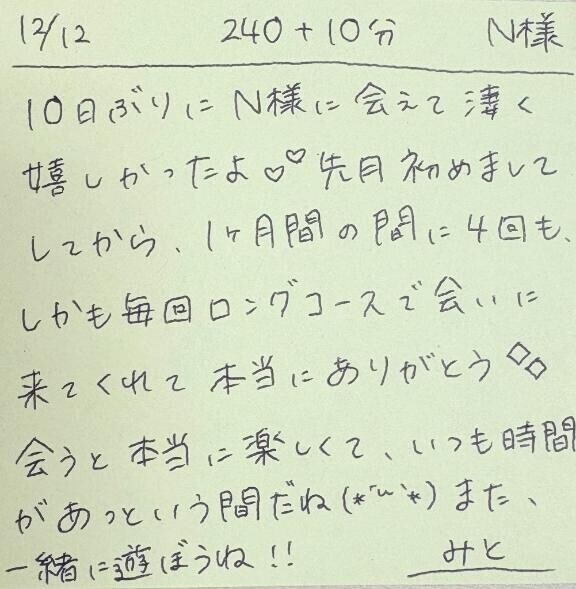 12/12 240+10分 N様
10日ぶりに N様に 会えて 凄く
嬉しかったよ♡♡ 先月 初めまして
してから、1ヶ月間の間に 4回も、
しかも毎回ロングコースで会いに
来てくれて 本当にありがとう◇◇
会うと本当に楽しくて、いつも時間
があっという間だね(*´꒳`*) また、
一緒に遊ぼうね!! みと